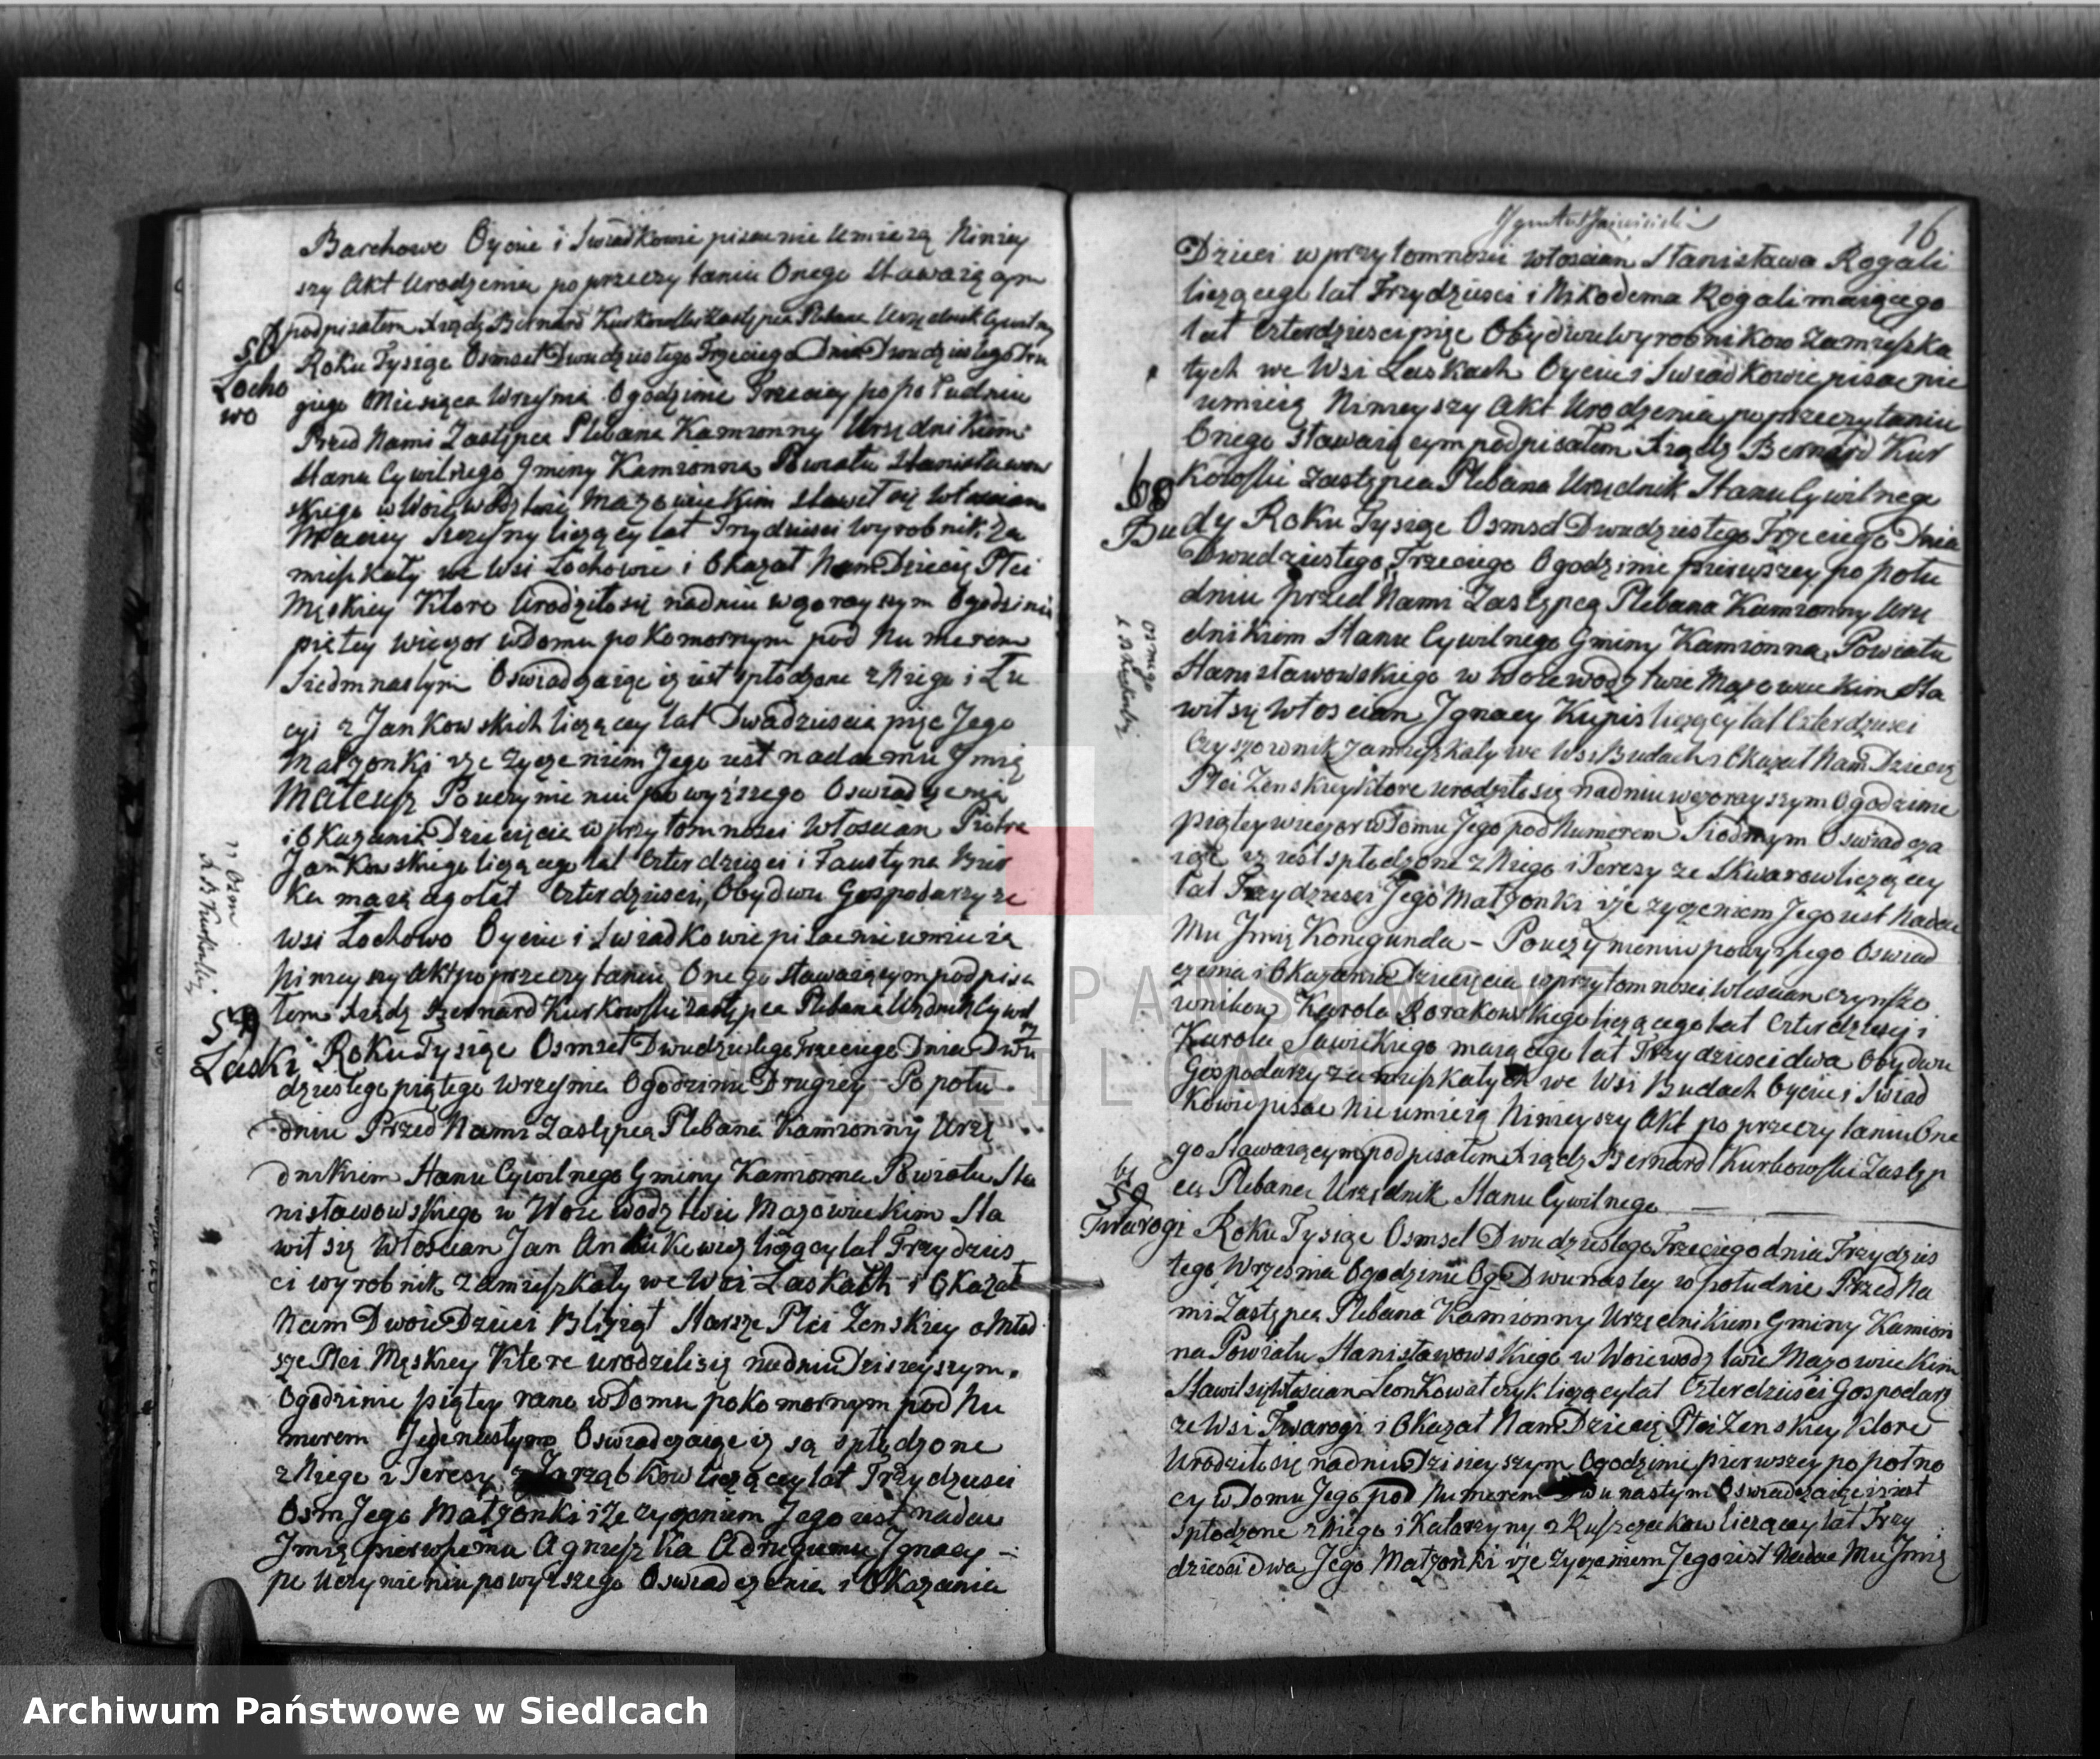 Barchowo Oycie i Swiadkowie pisać nie umieią Ninięy
szy Akt Urodzenia po przeczytaniu Onego Stawaiącym
podpisałem Xiądz Bernard Kurkowski Zastępca Plebana Urzędnik Cywilny
58
Łocho
wo
Roku Tysiąc Osmset Dwudziestego Trzeciego Dnia Dwudziestego Dru
giego Miesiąca Wrzesnia O godzinie Trzeciey po południu
Przed Nami Zastępca Plebana Kamionny Urzędnikiem
Stanu Cywilnego Gminy Kamionna Powiatu Stanisławow
skiego w Woiewodztwie Mazowieckim stawił się Włoscian
Maciey liczący lat Trzydziesci wyrobnik Za
mieszkały we Wsi Łochowie i Okazał Nam Dziecię Płci
Męskiey Ktore Urodziło się na dniu wczorayszym O godzinie
piętey wieczor w Domu po Komornym pod Numerem
Siedmnastym Oswiadczaiąc iż iest spłodzone z Niego i Łu
cyi z Jankowskich liczącey lat Dwadziescia pięc Jego
Małzonki ize życzeniem Jego iest nadac mu Jmię
Mateusz Po uczynieniu powyższego Oswiadczenia
i Okazania Dziecięcia w przytomnosci Włoscian Piotra
Jankowskiego liczącego lat Czterdziesci i Faustyna
maiącego lat Czterdziesci, Obydwu Gospodarzy ze
Wsi Łochowo Oycie i Swiadkowie pisac nie umieią
Ninieyszy Akt po przeczytaniu Onego stawaiącym podpisa
łem Xiądz Bernard Kurkowski Zastępca Plebana Urzędnik Cywil
ny
59
Laski
Roku Tysiąc Osmset Dwudziestego Trzeciego Dnia Dwu
dziestego piątego Wrzesnia O godzinie Drugiey Po połu
dniu Przed Nami Zastępcą Plebana Kamionny Urzę
dnikiem Stanu Cywilnego Gminy Kamionna Powiatu Sta
nisławowskiego w Woiewodztwie Mazowieckim Sta
wił się Włoscian Jan liczący lat Trzydzies
ci wyrobnik zamieszkały we Wsi Laskach i Okazał
Nam Dwoie Dzieci Blizniąt Starsze Płci Zenskiey a Młod
sze Płci Męskiey Ktore urodzili się na dniu Dzisieyszym
O godzinie piątey rano w Domu po komornym pod Nu
merem Jedenastym Oswiadczaiąc iz są spłodzone
z Niego i Teresy z Jarząbkow liczącey lat Trzydziesci
Osm Jego Małzonki i ze życzeniem Jego iest nadac
Jmię pierwszemu Agnieszka A drugiemu Jgnacy –
po uczynieniu powyższego Oswiadczenia i Okazania
16
Dzieci w przytomnosci włoscian Stanisława Rogali
liczącego lat Trzydziesci i Nikodema Rogali maiącego
lat Czterdziesci pięc Obydwu wyrobnikow Zamieszka
łych we Wsi Laskach Oycie i Swiadkowie pisac nie
umieią Ninieyszy Akt Urodzenia po przeczytaniu
Onego stawaiącym podpisałem Xiądz Bernard Kur
kowski Zastępca Plebana Urzędnik Stanu Cywilnego
60
Budy
Roku Tysiąc Osmset Dwudziestego Trzeciego Dnia
Dwudziestego Trzeciego O godzinie pierwszey po połu
dniu Przed Nami Zastępcą Plebana Kamionny Urzę
dnikiem Stanu Cywilnego Gminy Kamionna Powiatu
Stanisławowskiego w Woiewodztwie Mazowieckim Sta
wił się Włoscian Jgnacy Kupis liczący lat Czterdziesci
Czyszownik zamieszkały we Wsi Budach i Okazał Nam Dziecię
Płci Zenskiey Ktore urodziło się na dniu wczorayszym O godzinie
piątey wieczor w Domu Jego pod Numerem Siodmym Oswiadcza
iąc iz iest spłodzone z Niego i Teresy ze Skwarow liczącey
lat Trzydziesci Jego Małzonki ize życzeniem Jego iest Nadac
Mu Jmię Konegunda – Po uczynieniu powyższego Oswiad
czenia i Okazania Dziecięcia w przytomnosci Włoscian czynszo
wnikow Karola Borakowskiego liczącego lat Czterdziesci i
Karola Sawickiego maiącego lat Trzydziesci dwa Obydwu
Gospodarzy zamieszkałych we Wsi Budach Oycie i Swiad
kowie pisac Nie umieią Ninieyszy Akt po przeczytaniu One
go Stawaiącym podpisałem Xiądz Bernard Kurkowski Zastęp
ca Plebana Urzędnik Stanu Cywilnego
61
Twarogi
Roku Tysiąc Osmset Dwudziestego Trzeciego dnia Trzydzies
tego Wrzesnia O godzinie Dwunastey w południe Przed Na
mi Zastępcą Plebana Kamionny Urzędnikiem Gminy Kamion
na Powiatu Stanisławowskiego w Woiewodztwie Mazowieckim
Stawił się Włoscian Leon Kowalczyk liczący lat Czterdziesci Gospodarz
ze Wsi Twarogi i Okazał Nam Dziecię Płci Zenskiey Ktore
Urodziło się na dniu Dzisieyszym O godzinie pierwszey po połno
cy w Domu Jego pod Numerem Dwunastym Oswiadczaiąc iz iest
spłodzone z Niego i Katarzyny z liczącey lat Trzy
dziesci dwa Jego Małzonki ize życzeniem Jego iest Nadac Mu Jmię
ARCHIWUM PAŃSTWOWE
W SIEDLCACH
Archiwum Państwowe w Siedlcach